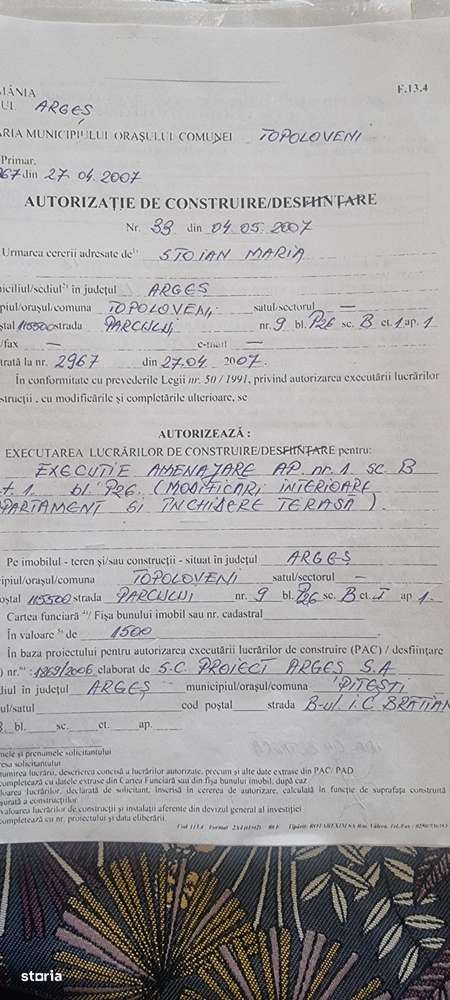 MÂNIA
F.13.4
UL ARGEȘ
ARIA MUNICIPIULUI ORAȘULUI COMUNEI TOPOLOVENI
Primar,
967 din 27.04.2007
AUTORIZAȚIE DE CONSTRUIRE/DESFIINȚARE
Nr. 33 din 04.05.2007
Urmarea cererii adresate de¹⁾ STOIAN MARIA
miciliul/sediul²⁾ în județul ARGEȘ
ipiul/orașul/comuna TOPOLOVENI satul/sectorul —
ștal 115500 strada PARCULUI nr. 9 bl. P26 sc. B et. 1 ap. 1
/fax — e-mail —
trată la nr. 2967 din 27.04. 2007.
În conformitate cu prevederile Legii nr. 50 / 1991, privind autorizarea executării lucrărilor
strucții, cu modificările și completările ulterioare, se
AUTORIZEAZĂ :
EXECUTAREA LUCRĂRILOR DE CONSTRUIRE/DESFIINȚARE pentru:
EXECUȚIE AMENAJARE AP. nr. 1 sc. B
et. 1. bl. P26. (MODIFICARI INTERIOARE
PARTAMENT SI ÎNCHIDERE TERASĂ).
Pe imobilul - teren și/sau construcții - situat în județul ARGEȘ
ipiul/orașul/comuna TOPOLOVENI satul/sectorul —
oștal 115500 strada PARCULUI nr. 9 bl. P26 sc. B et. I ap 1.
Cartea funciară ⁴⁾/ Fișa bunului imobil sau nr. cadastral
În valoare ⁵⁾ de 1500
În baza proiectului pentru autorizarea executării lucrărilor de construire (PAC) / desființare
) nr.⁶⁾ : 1269/2006 elaborat de S.C. PROIECT ARGEȘ S.A
diul în județul ARGEȘ municipiul/orașul/comuna PITEȘTI
ul/satul cod poștal strada B-ul. I.C. BRĂTIAN
bl. sc. et. ap.
mele și prenumele solicitantului
esa solicitantului
umirea lucrării, descrierea concisă a lucrărilor autorizate, precum și alte date extrase din PAC/ PAD
completează cu datele extrase din Cartea Funciară sau din fișa bunului imobil, după caz
loarea lucrărilor, declarată de solicitant, înscrisă în cererea de autorizare, calculată în funcție de suprafața construită
șurată a construcțiilor
valoarea lucrărilor de construcții și instalații aferente din devizul general al investiției
completează cu nr. proiectului și data eliberării.
storia